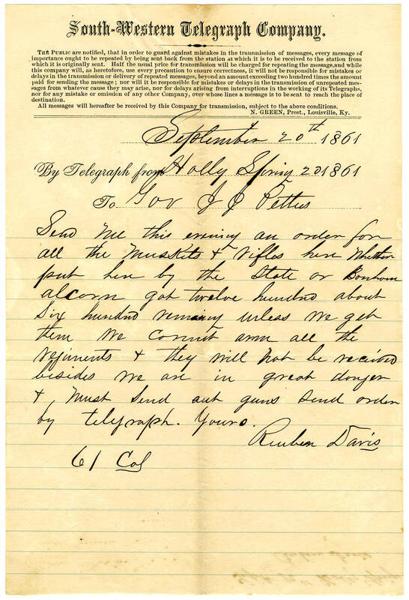 South-Western Telegraph Company.
THE PUBLIC are notified, that in order to guard against mistakes in the transmission of messages, every message of
importance ought to be repeated by being sent back from the station at which it is to be received to the station from
which it is originally sent. Half the usual price for transmission will be charged for repeating the message, and while
this company will, as heretofore, use every precaution to ensure correctness, it will not be responsible for mistakes or
delays in the transmission or delivery of repeated messages, beyond an amount exceeding two hundred times the amount
paid for sending the message; nor will it be responsible for mistakes or delays in the transmission of unrepeated mes-
sages from whatever cause they may arise, nor for delays arising from interruptions in the working of its Telegraphs,
nor for any mistake or omission of any other Company, over whose lines a message is to be sent to reach the place of
destination.
All messages will hereafter be received by this Company for transmission, subject to the above conditions.
N. GREEN, Prest., Louisville, Ky.
September 20th 1861
By Telegraph from Holly Spring 20 1861
To Gov J J Pettus
Send me this evening an order for
all the Muskets & rifles here Whether
put here by the State or Bonham
alcorn got twelve hundred about
Six hundred remaing unless we get
them We cannot arm all the
Regiments & they will not be received
besides We are in great danger
& Must Send out guns Send order
by telegraph. Yours.
Reuben Davis
61 Col